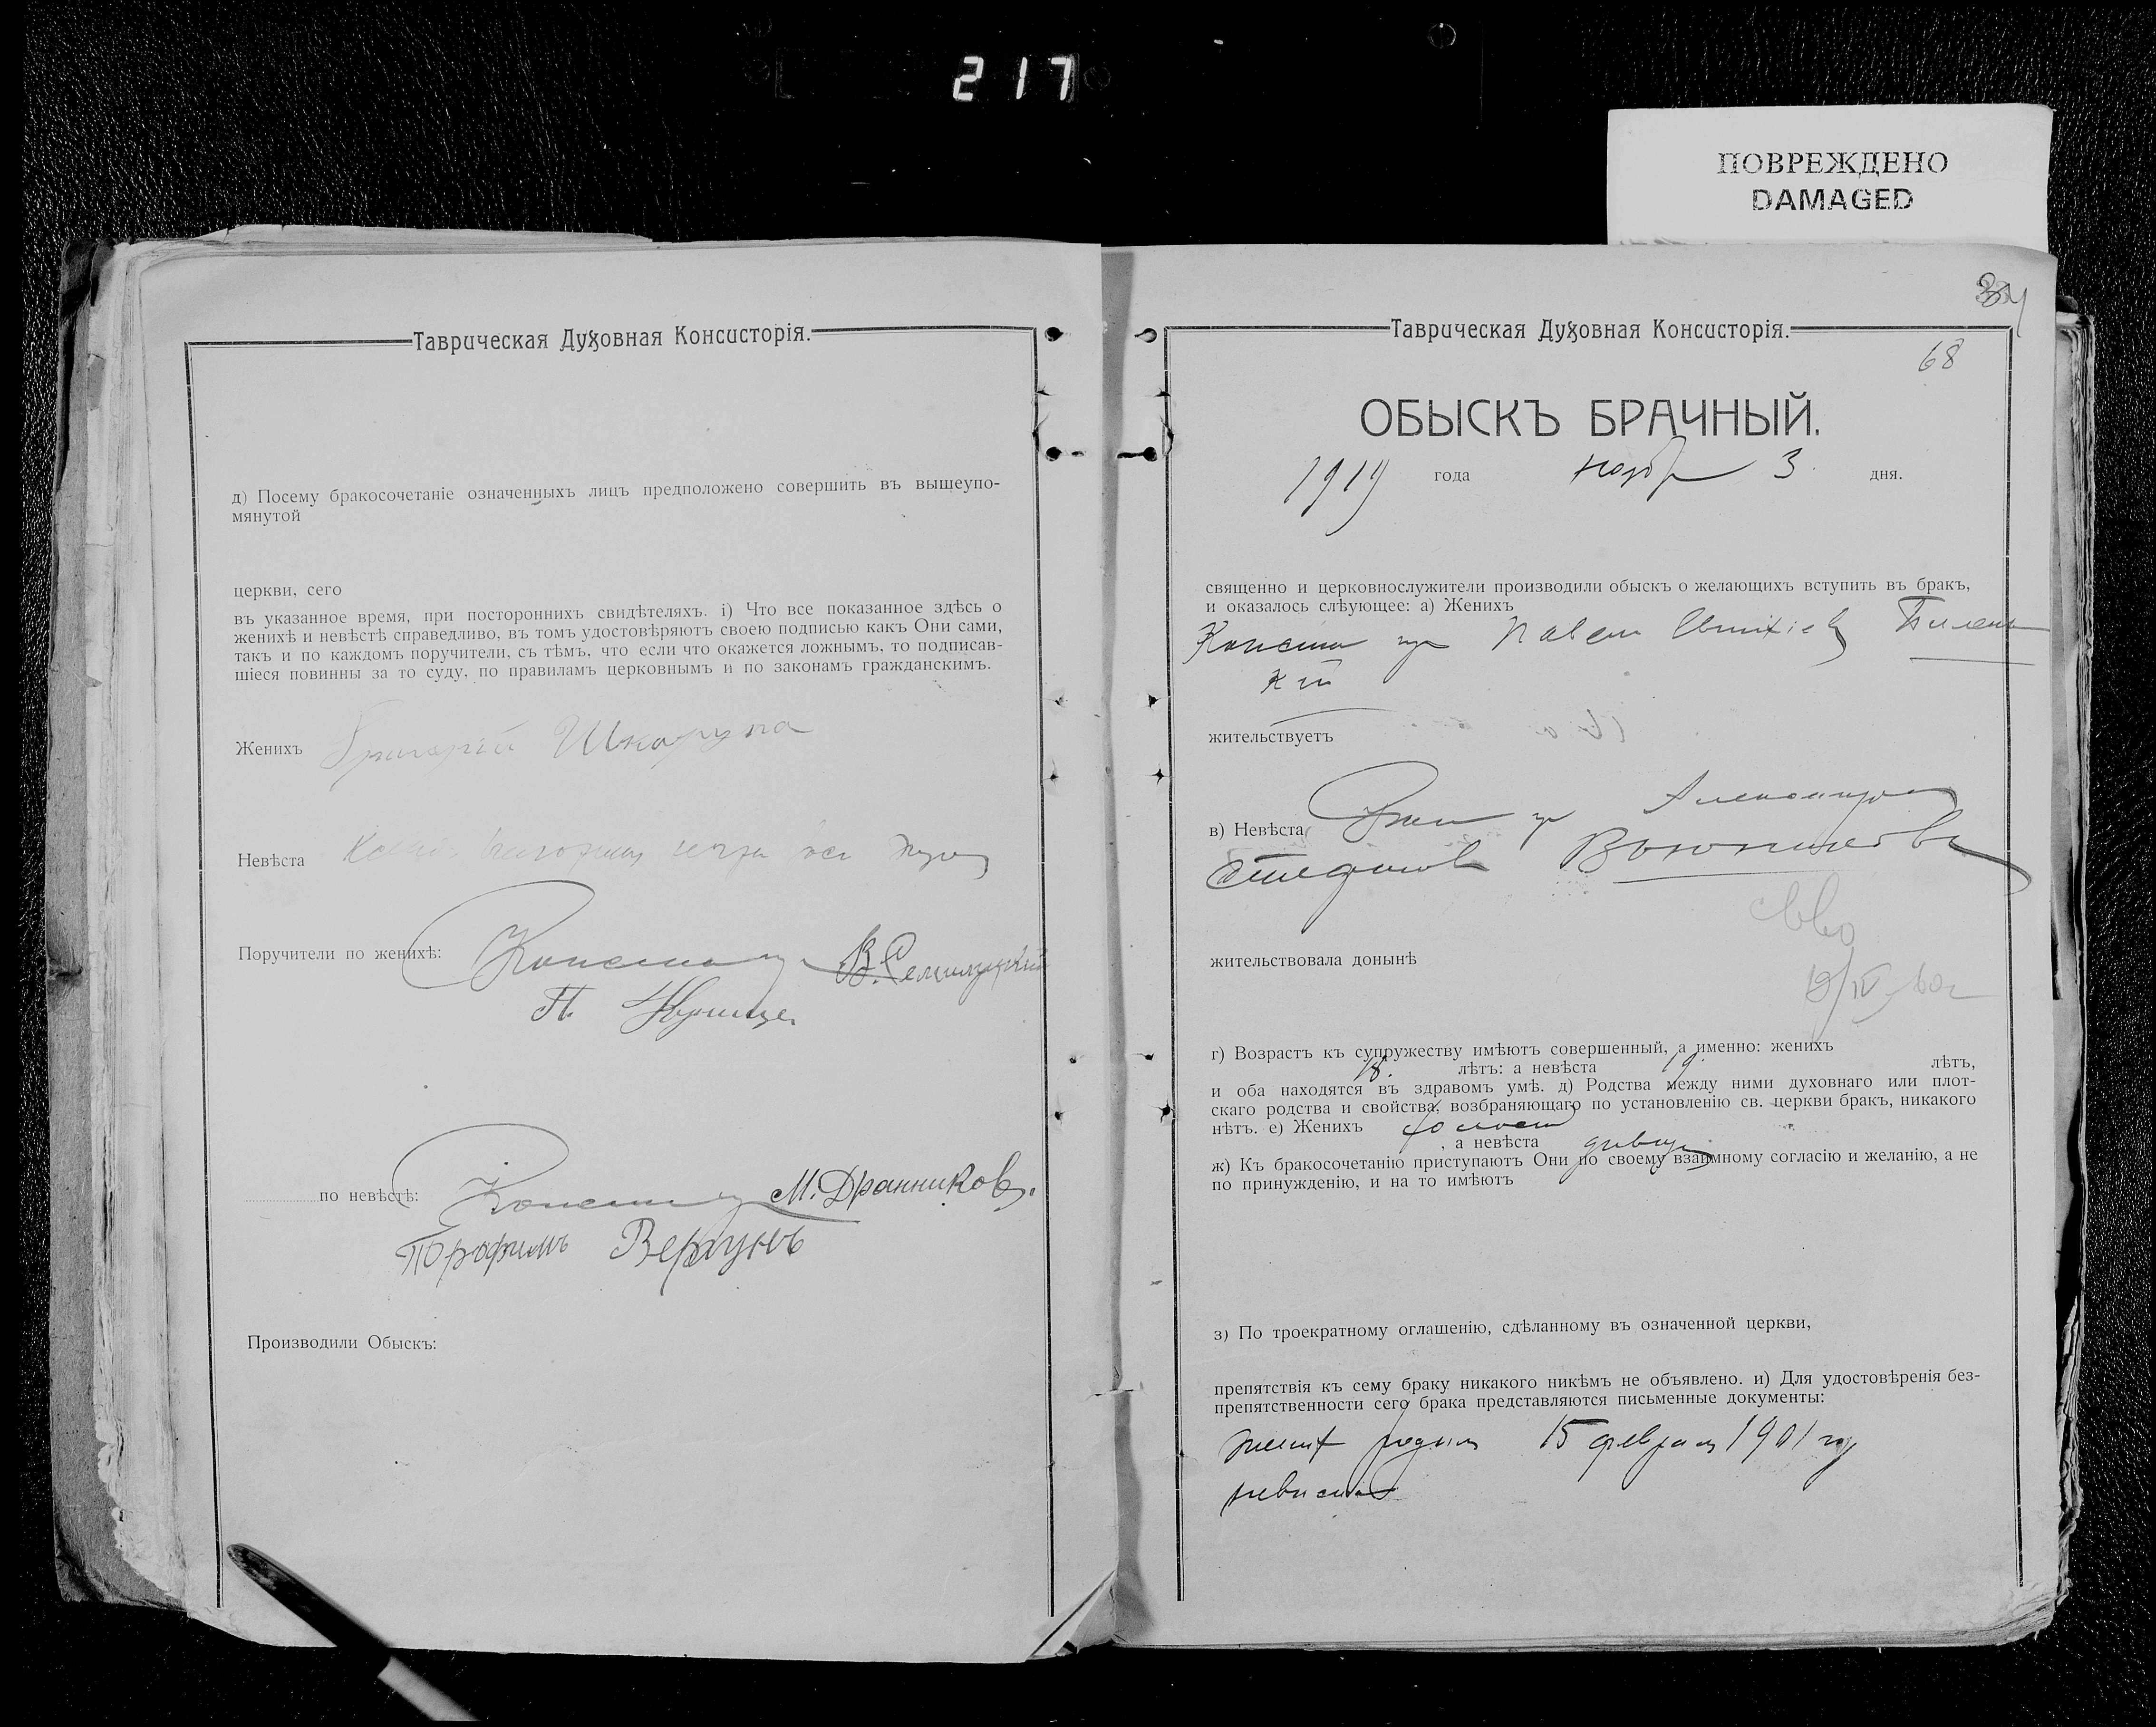 217
ПОВРЕЖДЕНО
DAMAGED
Таврическая Духовная Консисторія.
д) Посему бракосочетаніе означенныхъ лицъ предположено совершить въ вышеупо-
мянутой
церкви, сего
въ указанное время, при постороннихъ свидѣтеляхъ. і) Что все показанное здѣсь о
женихѣ и невѣстѣ справедливо, въ томъ удостовѣряютъ своею подписью какъ Они сами,
такъ и по каждомъ поручители, съ тѣмъ, что если что окажется ложнымъ, то подписав-
шіеся повинны за то суду, по правиламъ церковнымъ и по законамъ гражданскимъ.
Женихъ Григорій Шкарупа
Невѣста
Поручители по женихѣ:
П.
по невѣстѣ: М. Дранниковъ.
Трофимъ Вергунъ
Производили Обыскъ:
Таврическая Духовная Консисторія.
68
ОБЫСКЪ БРАЧНЫЙ.
1919 года нояб 3 дня.
священно и церковнослужители производили обыскъ о желающихъ вступить въ бракъ,
и оказалось слѣующее: а) Женихъ
Павел Билень
кій
жительствуетъ
в) Невѣста
жительствовала донынѣ
г) Возрастъ къ супружеству имѣютъ совершенный, а именно: женихъ
18. лѣтъ: а невѣста 19 лѣтъ,
и оба находятся въ здравомъ умѣ. д) Родства между ними духовнаго или плот-
скаго родства и свойства, возбраняющаго по установленію св. церкви бракъ, никакого
нѣтъ. е) Женихъ холост
, а невѣста девица
ж) Къ бракосочетанію приступаютъ Они по своему взаимному согласію и желанію, а не
по принужденію, и на то имѣютъ
з) По троекратному оглашенію, сдѣланному въ означенной церкви,
препятствія къ сему браку никакого никѣмъ не объявлено. и) Для удостовѣренія без-
препятственности сего брака представляются письменные документы:
жених родил 15 феврал 1901 год
невиста